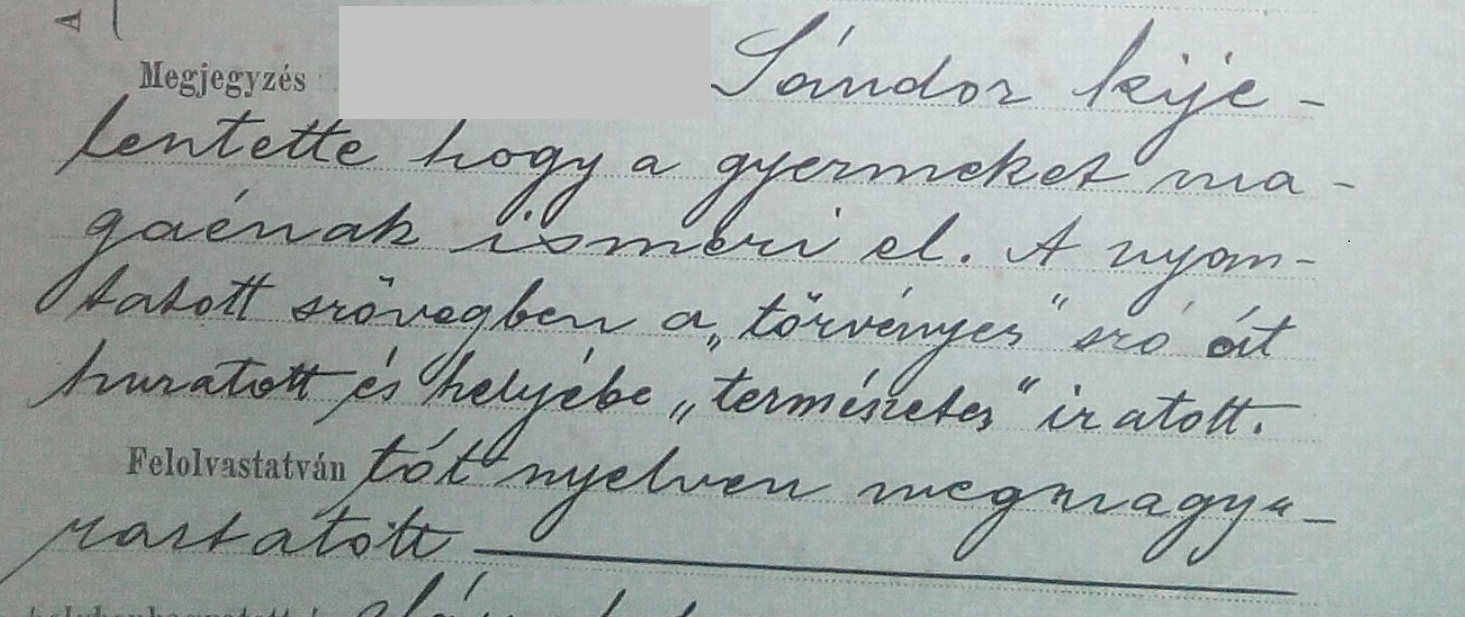 Megjegyzés Sándor kije-
lentette hogy a gyermeket ma-
gaénak ismeri el. A nyom-
tatott szövegben a „törvényes" szó át
huzatott és helyébe „természetes" iratott.
Felolvastatván tót nyelven megmagya-
raztatott